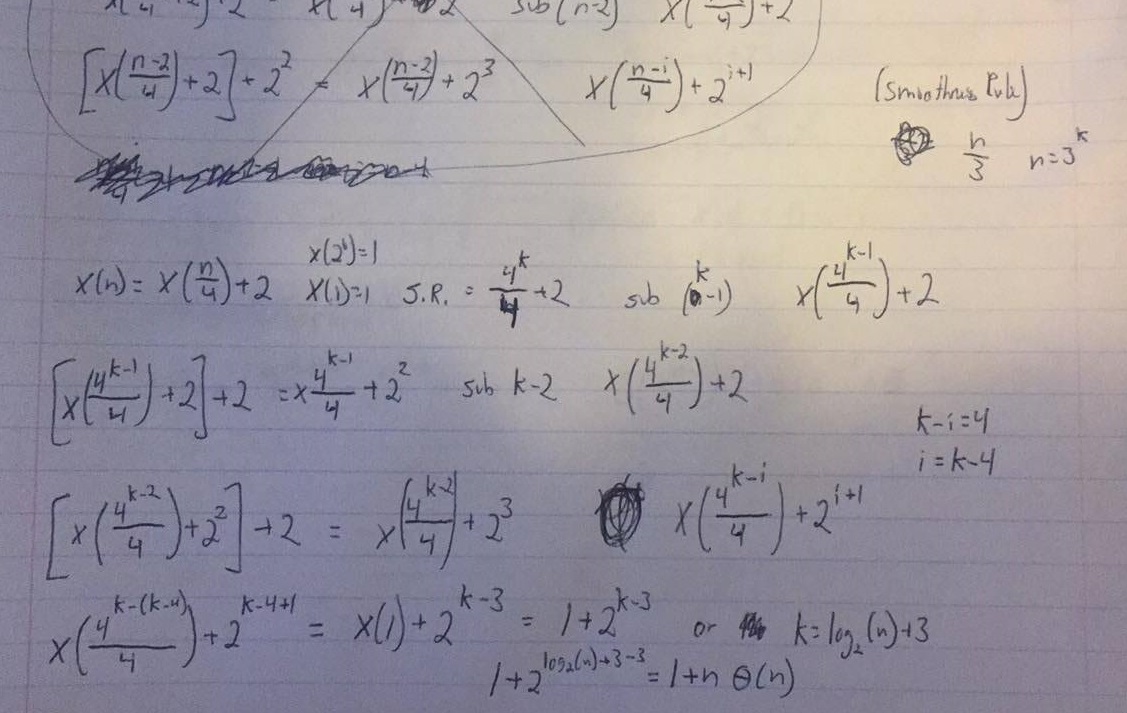 sub (n-2) +2
[x((n-2)/4)+2]+2² = x((n-2)/4)+2³ x((n-i)/4)+2^(i+1) (Smoothness Rule)
n/3 n=3^k
x(n)=x(n/4)+2 x(1)=1 S.R. = 4^k/4 +2 sub (k-1) x(4^(k-1)/4)+2
[x(4^(k-1)/4)+2]+2 =x 4^(k-1)/4 +2² sub k-2 x(4^(k-2)/4)+2
k-i=4
i=k-4
[x(4^(k-2)/4)+2²]+2 = x(4^(k-2)/4)+2³ x(4^(k-i)/4)+2^(i+1)
x(4^(k-(k-4))/4)+2^(k-4+1) = x(1)+2^(k-3) = 1+2^(k-3) or k=log₂(n)+3
1+2^(log₂(n)+3-3) = 1+n Θ(n)